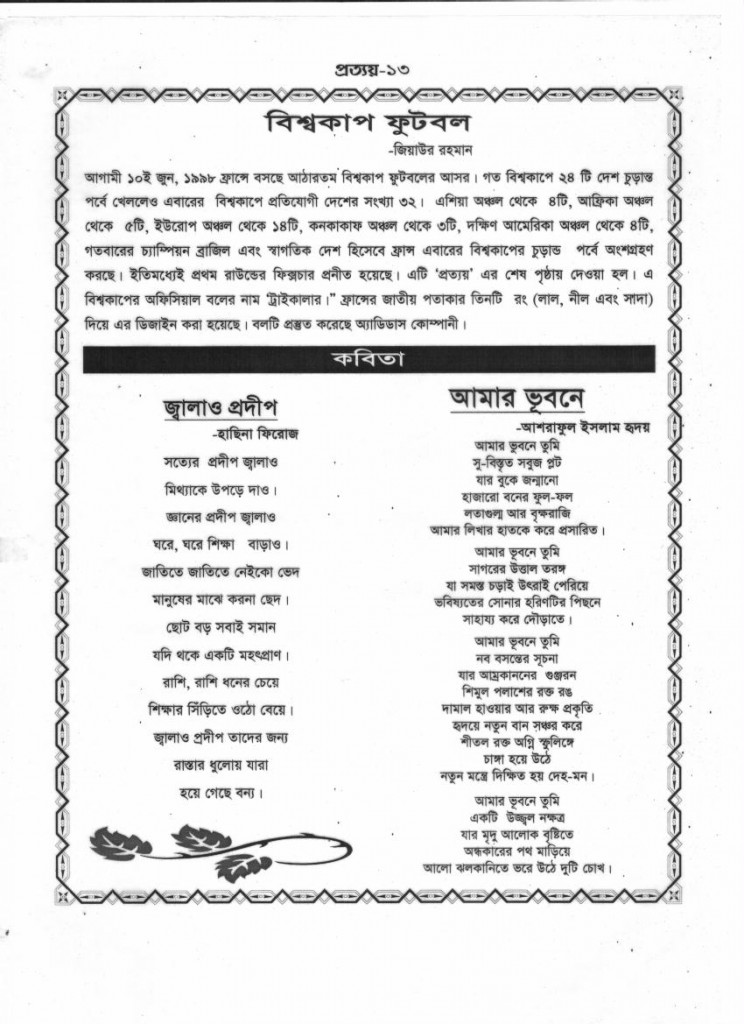 প্রত্যয়-১৩
বিশ্বকাপ ফুটবল
-জিয়াউর রহমান
আগামী ১০ই জুন, ১৯৯৮ ফ্রান্সে বসছে আঠারতম বিশ্বকাপ ফুটবলের আসর। গত বিশ্বকাপে ২৪ টি দেশ চুড়ান্ত
পর্বে খেললেও এবারের বিশ্বকাপে প্রতিযোগী দেশের সংখ্যা ৩২। এশিয়া অঞ্চল থেকে ৪টি, আফ্রিকা অঞ্চল
থেকে ৫টি, ইউরোপ অঞ্চল থেকে ১৪টি, কনকাকাফ অঞ্চল থেকে ৩টি, দক্ষিণ আমেরিকা অঞ্চল থেকে ৪টি,
গতবারের চ্যাম্পিয়ন ব্রাজিল এবং স্বাগতিক দেশ হিসেবে ফ্রান্স এবারের বিশ্বকাপের চুড়ান্ত পর্বে অংশগ্রহণ
করছে। ইতিমধ্যেই প্রথম রাউন্ডের ফিক্সচার প্রনীত হয়েছে। এটি 'প্রত্যয়' এর শেষ পৃষ্ঠায় দেওয়া হল। এ
বিশ্বকাপের অফিসিয়াল বলের নাম 'ট্রাইকালার।" ফ্রান্সের জাতীয় পতাকার তিনটি রং (লাল, নীল এবং সাদা)
দিয়ে এর ডিজাইন করা হয়েছে। বলটি প্রস্তুত করেছে অ্যাডিডাস কোম্পানী।
কবিতা
জ্বালাও প্রদীপ
-হাছিনা ফিরোজ
সত্যের প্রদীপ জ্বালাও
মিথ্যাকে উপড়ে দাও।
জ্ঞানের প্রদীপ জ্বালাও
ঘরে, ঘরে শিক্ষা বাড়াও।
জাতিতে জাতিতে নেইকো ভেদ
মানুষের মাঝে করনা ছেদ।
ছোট বড় সবাই সমান
যদি থকে একটি মহৎপ্রাণ।
রাশি, রাশি ধনের চেয়ে
শিক্ষার সিঁড়িতে ওঠো বেয়ে।
জ্বালাও প্রদীপ তাদের জন্য
রাস্তার ধুলোয় যারা
হয়ে গেছে বন্য।
আমার ভূবনে
-আশরাফুল ইসলাম হৃদয়
আমার ভুবনে তুমি
সু-বিস্তৃত সবুজ প্লট
যার বুকে জন্মানো
হাজারো বনের ফুল-ফল
লতাগুল্ম আর বৃক্ষরাজি
আমার লিখার হাতকে করে প্রসারিত।
আমার ভূবনে তুমি
সাগরের উত্তাল তরঙ্গ
যা সমস্ত চড়াই উৎরাই পেরিয়ে
ভবিষ্যতের সোনার হরিণটির পিছনে
সাহায্য করে দৌড়াতে।
আমার ভূবনে তুমি
নব বসন্তের সূচনা
যার আম্রকাননের গুঞ্জরন
শিমুল পলাশের রক্ত রঙ
দামাল হাওয়ার আর রুক্ষ প্রকৃতি
হৃদয়ে নতুন বান সঞ্চর করে
শীতল রক্ত অগ্নি স্ফুলিঙ্গে
চাঙ্গা হয়ে উঠে
নতুন মন্ত্রে দিক্ষিত হয় দেহ-মন।
আমার ভূবনে তুমি
একটি উজ্জ্বল নক্ষত্র
যার মৃদু আলোক বৃষ্টিতে
অন্ধকারের পথ মাড়িয়ে
আলো ঝলকানিতে ভরে উঠে দুটি চোখ।